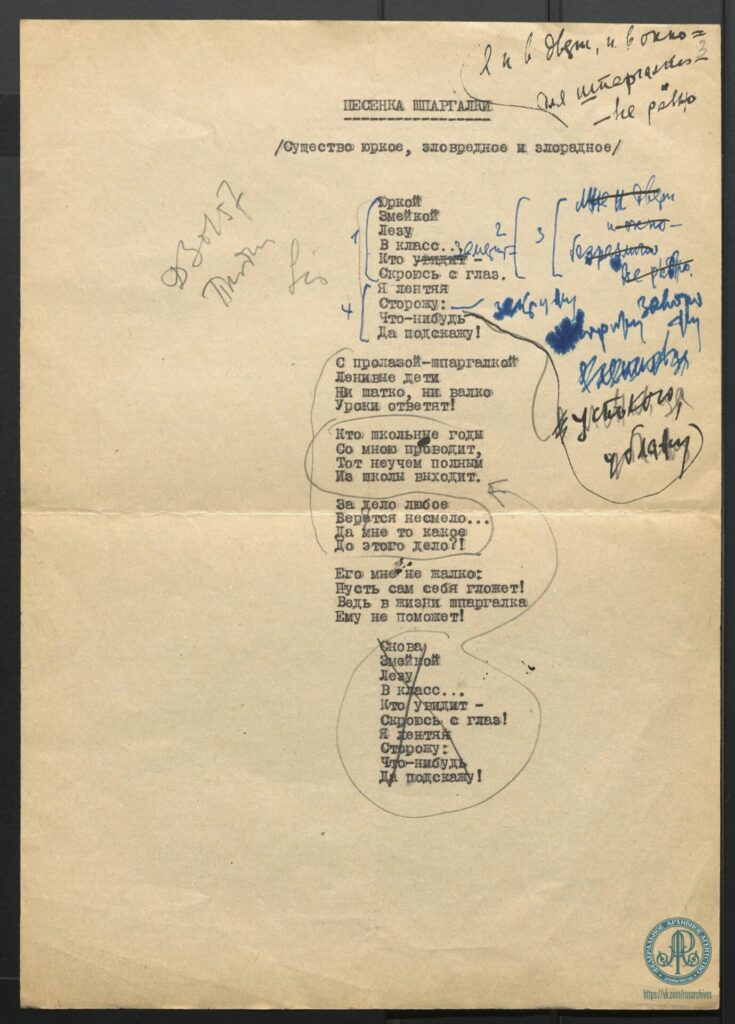 и в двери, и в окно –
3
для шпаргалки –
не равно
ПЕСЕНКА ШПАРГАЛКИ
/Существо юркое, зловредное и злорадное/
Юркой
Змейкой
Лезу
В класс...
Кто увидит – заметит
Скроюсь с глаз.
Я лентяя
Сторожу:
Что-нибудь
Да подскажу!
1
2
3
4
Мне и двери
и окно –
безразлично
все равно.
С пролазой-шпаргалкой
Ленивые дети
Ни шатко, ни валко
Уроки ответят!
Кто школьные годы
Со мною проводит,
Тот неучем полным
Из школы выходит.
За дело любое
Берется несмело...
Да мне то какое
До этого дело?!
Его мне не жалко:
Пусть сам себя гложет!
Ведь в жизни шпаргалка
Ему не поможет!
Снова
Змейкой
Лезу
В класс...
Кто увидит –
Скроюсь с глаз!
Я лентяя
Сторожу:
Что-нибудь
Да подскажу!
ФЕДЕРАЛЬНОЕ АРХИВНОЕ АГЕНТСТВО
https://vk.com/rusarchives